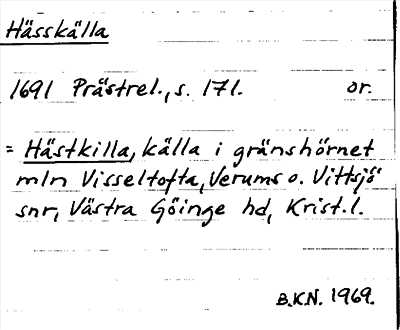 Hässkälla
1691 Prästrel., s. 171. or.
= Hästkilla, källa i gränshörnet
mln Visseltofta, Verums o. Vittsjö
snr, Västra Göinge hd, Krist. l.
B.K.N. 1969.